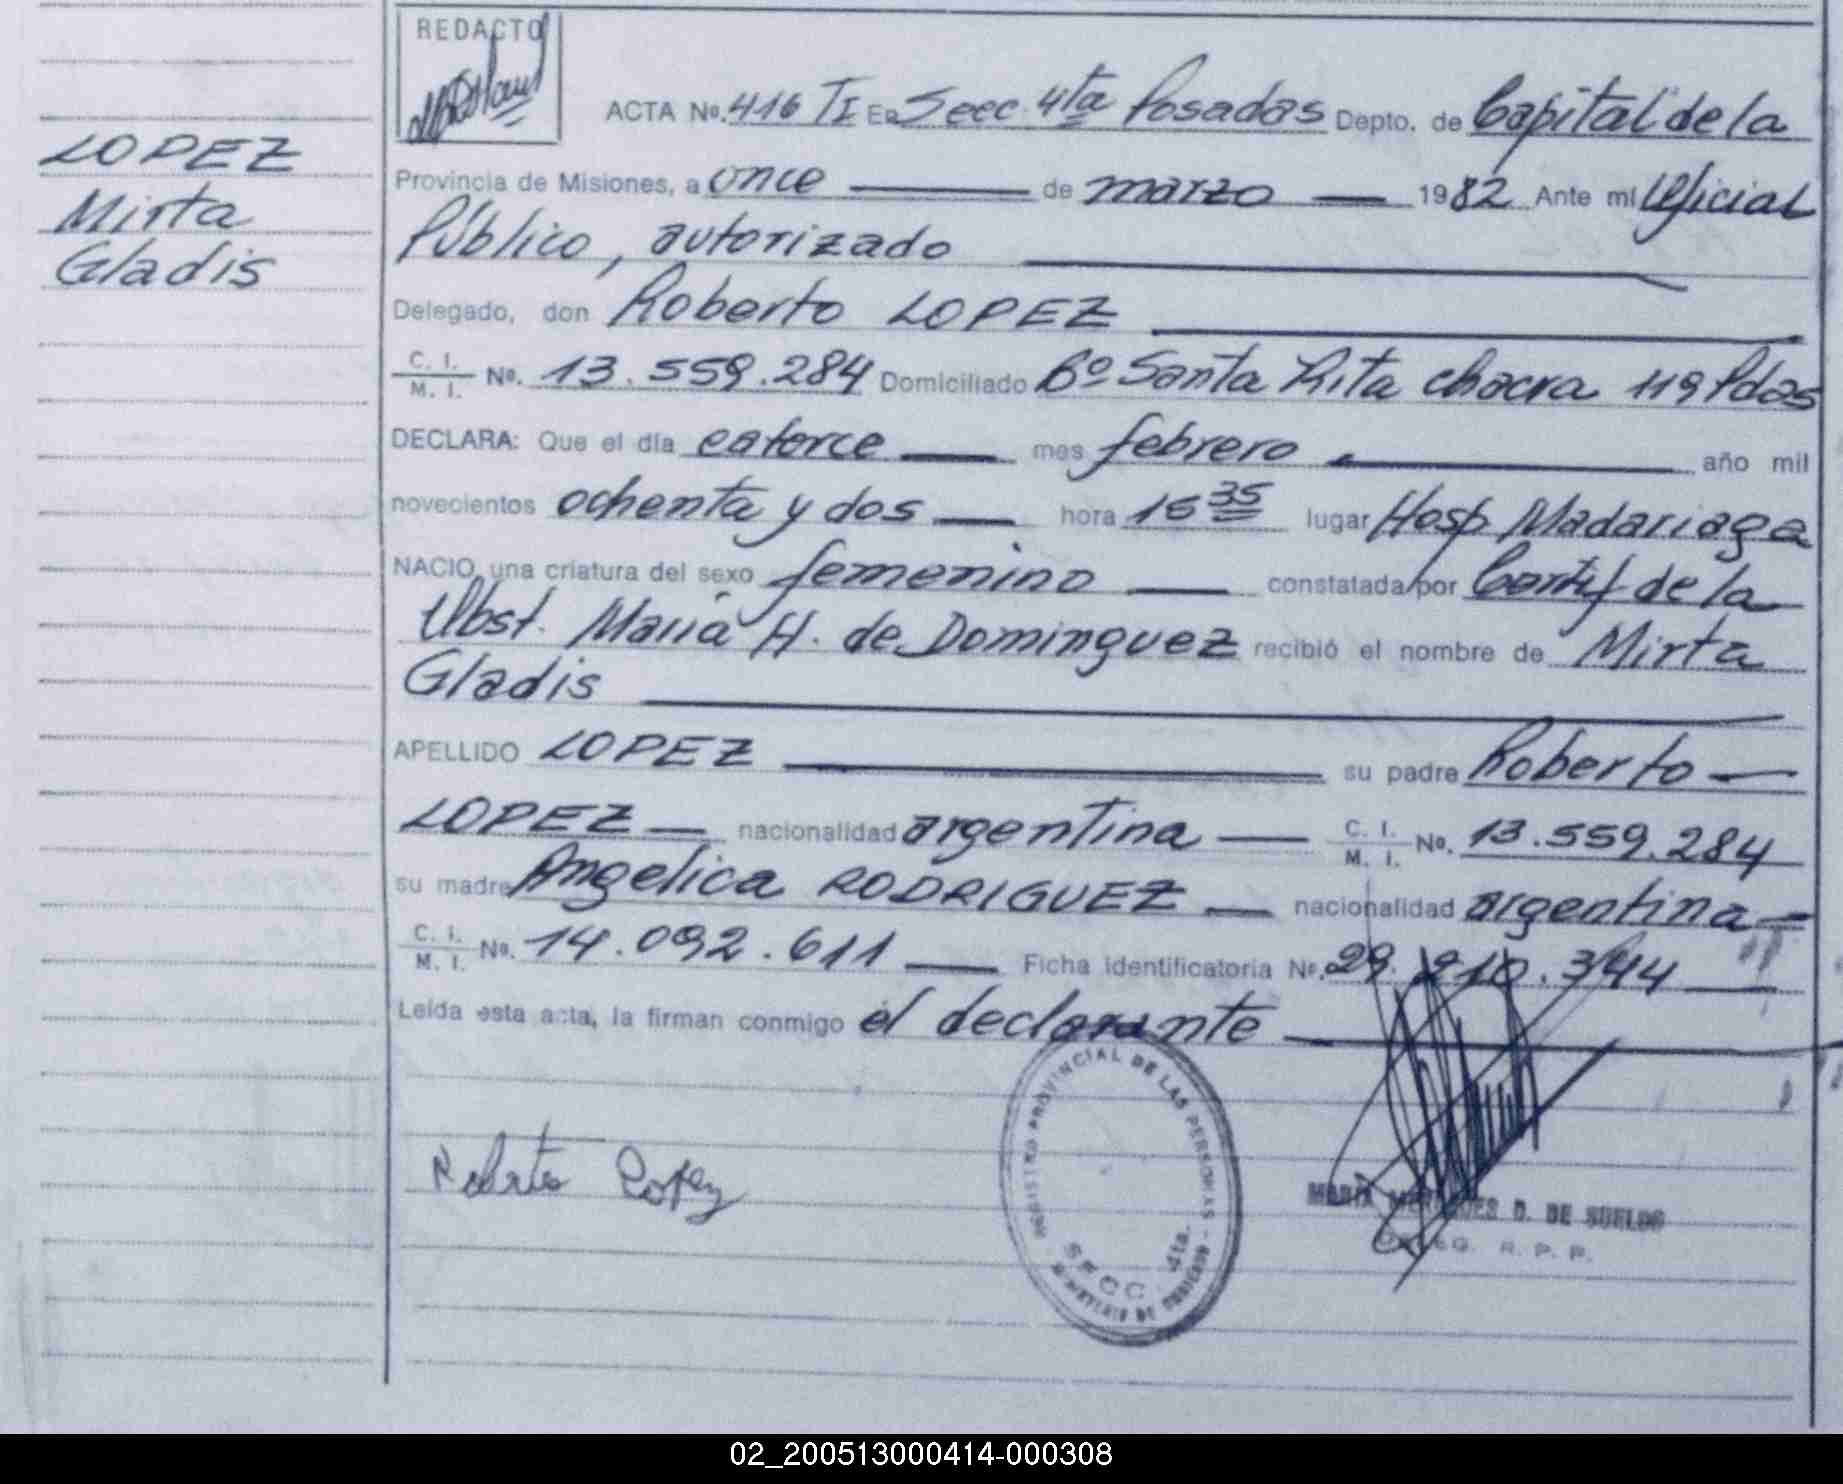 REDACTO
ACTA Nº. 416 TI En Secc 4ta Posadas Depto. de Capital de la
LOPEZ
Mirta
Gladis
Provincia de Misiones, a once de marzo 1982 Ante mí Oficial
Público, autorizado
Delegado, don Roberto LOPEZ
C. I.
M. I. Nº. 13.559.284 Domiciliado Bº Santa Rita chacra 119 Pdas
DECLARA: Que el día catorce mes febrero año mil
novecientos ochenta y dos hora 15 35 lugar Hosp Madariaga
NACIO una criatura del sexo femenino constatada por Certif de la
Obst. María H. de Dominguez recibió el nombre de Mirta
Gladis
APELLIDO LOPEZ su padre Roberto
LOPEZ nacionalidad argentina C. I.
M. I. Nº. 13.559.284
su madre Angelica RODRIGUEZ nacionalidad argentina
C. I.
M. I. Nº. 14.092.611 Ficha Identificatoria Nº. 29. 210.344
Leída esta acta, la firman conmigo el declarante
Roberto Lopez
REGISTRO PROVINCIAL DE LAS PERSONAS
SECC. 4ta.
MINISTERIO DE GOBIERNO
MARIA D. DE SUELDO
R. P. P.
02_200513000414-000308